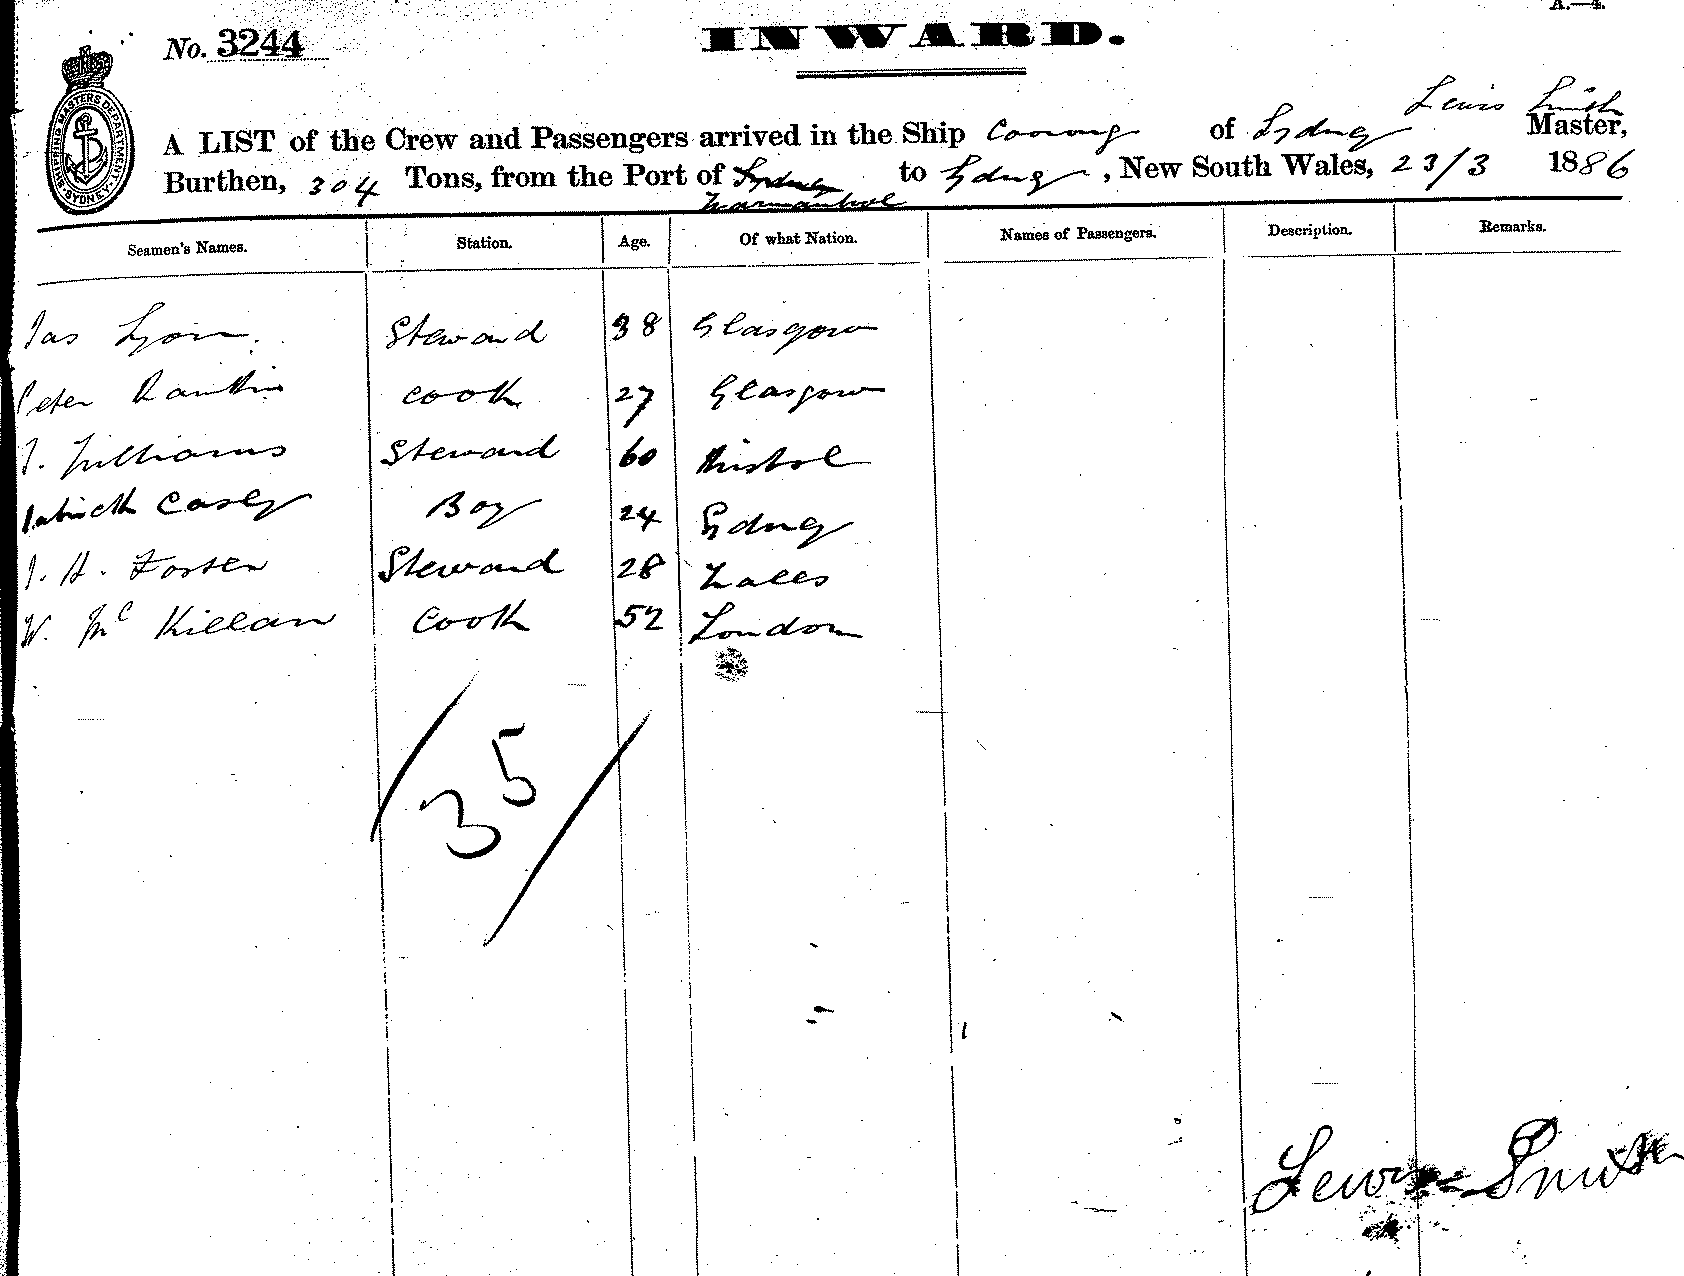 A.—4.
No. 3244
INWARD.
SHIPPING MASTERS DEPARTMENT SYDNEY
Lewis Smith
A LIST of the Crew and Passengers arrived in the Ship Coorong of Sydney Master,
Burthen, 304 Tons, from the Port of Sydney to Sydney, New South Wales, 23/3 1886
Warrnambool
Seamen's Names. Station. Age. Of what Nation. Names of Passengers. Description. Remarks.
Jas Lyon. Steward 38 Glasgow
Peter Rankin Cook 27 Glasgow
J. Williams Steward 60 Bristol
Patrick Casey Boy 24 Sydney
J. H. Foster Steward 28 Wales
W. Mc Killan Cook 52 London
/35/
Lewis Smith